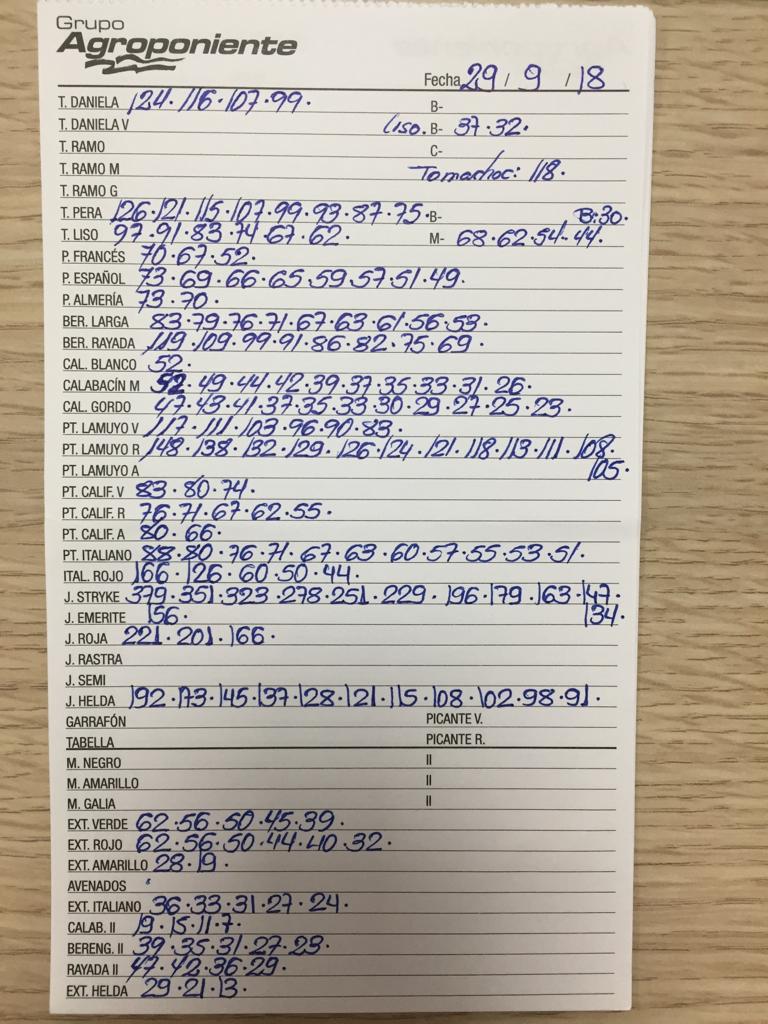 Grupo
Agroponiente
Fecha 29 / 9 / 18
T. DANIELA 124·116·107·99· B-
T. DANIELA V Liso. B- 37·32·
T. RAMO C-
T. RAMO M Tomachoc: 118·
T. RAMO G
T. PERA 126·121·115·107·99·93·87·75· B- B:30·
T. LISO 97·91·83·74·67·62· M- 68·62·54·44·
P. FRANCÉS 70·67·52·
P. ESPAÑOL 73·69·66·65·59·57·51·49·
P. ALMERÍA 73·70·
BER. LARGA 83·79·76·71·67·63·61·56·53·
BER. RAYADA 119·109·99·91·86·82·75·69·
CAL. BLANCO 52·
CALABACÍN M 52·49·44·42·39·37·35·33·31·26·
CAL. GORDO 47·43·41·37·35·33·30·29·27·25·23·
PT. LAMUYO V 117·111·103·96·90·83·
PT. LAMUYO R 148·138·132·129·126·124·121·118·113·111·108·
PT. LAMUYO A 105·
PT. CALIF. V 83·80·74·
PT. CALIF. R 76·71·67·62·55·
PT. CALIF. A 80·66·
PT. ITALIANO 88·80·76·71·67·63·60·57·55·53·51·
ITAL. ROJO 166·126·60·50·44·
J. STRYKE 379·351·323·278·251·229·196·179·163·147·
J. EMERITE 156· 134·
J. ROJA 221·201·166·
J. RASTRA
J. SEMI
J. HELDA 192·173·145·137·128·121·115·108·102·98·91·
GARRAFÓN PICANTE V.
TABELLA PICANTE R.
M. NEGRO II
M. AMARILLO II
M. GALIA II
EXT. VERDE 62·56·50·45·39·
EXT. ROJO 62·56·50·44·40·32·
EXT. AMARILLO 28·19·
AVENADOS
EXT. ITALIANO 36·33·31·27·24·
CALAB. II 19·15·11·7·
BERENG. II 39·35·31·27·23·
RAYADA II 47·42·36·29·
EXT. HELDA 29·21·13·